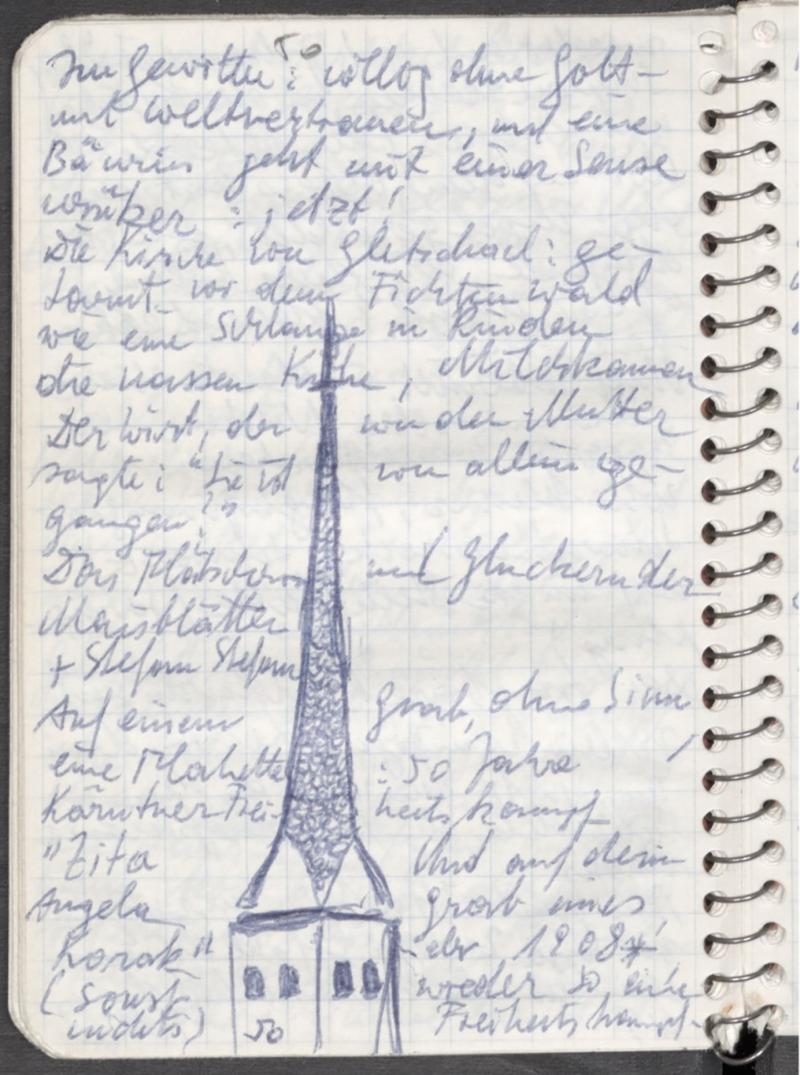 50
Im Gewitter: völlig ohne Gott-
und Weltvertrauen, und eine
Bäuerin geht mit einer Sense
vorüber: jetzt!
Die Kirche von Gletschach: ge-
tarnt vor dem Fichtenwald
wie eine Schlange in Rinden
die nassen Kühe, Milchkannen
Der Wirt, der von der Mutter
sagte: "Sie ist von allein ge-
gangen!"
Das Plätschern und Gluckern der
Maisblätter
+ Stefan Stefan
Auf einem Grab, ohne Sinn,
eine Plakette: 50 Jahre
Kärntner Freiheitskampf
"Zita Und auf dem
Angela Grab eines
Korak" der 1908*
(Sonst wieder so ein
nichts) Freiheitskampf-
50